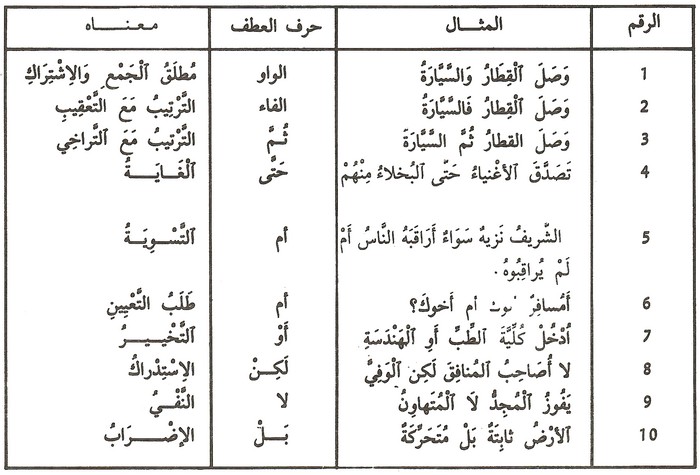 الرقم المثال حرف العطف معناه
1 وَصَلَ ٱلْقِطَارُ وَالسَّيَّارَةُ الواو مُطلَقُ ٱلْجَمْعِ وَالِاشْتِرَاكِ
2 وَصَلَ ٱلْقِطَارُ فَالسَّيَّارَةُ الفاء التَّرْتِيبُ مَعَ التَّعْقِيبِ
3 وَصَلَ القطارُ ثُمَّ السَّيَّارَةَ ثُمَّ التَّرْتِيبُ مَعَ ٱلتَّراخِي
4 تَصَدَّقَ الأَغْنِياءُ حَتّى ٱلبُخلاءُ مِنْهُمْ حَتَّى ٱلْغَايَةُ
5 الشَّرِيفُ نَزِيهٌ سَوَاءٌ أَرَاقَبَهُ النَّاسُ أَمْ أم ٱلتَّسْوِيَةُ
لَمْ يُراقِبُوهُ.
6 أَمُسافِرٌ أم أخوكَ؟ أم طَلَبُ التَّعْيِينِ
7 اُدْخُلْ كُلِّيَّةَ ٱلطِّبِّ أَوِ ٱلْهَنْدَسَةِ أَوْ ٱلتَّخْيِيرُ
8 لا أُصَاحِبُ المُنافِقَ لَكِنِ ٱلْوَفِيَّ لَكِنْ الِاسْتِدْراكُ
9 يَفُوزُ ٱلْمُجِدُّ لَا ٱلْمُتَهاوِنُ لا النَّفْيُ
10 ٱلأَرْضُ ثابِتَةٌ بَلْ مُتَحَرِّكَةٌ بَلْ الإِضْرَابُ